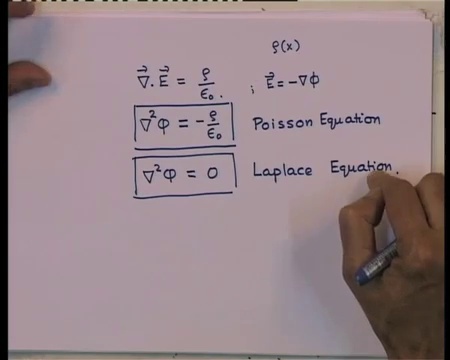 ρ(x)
∇⃗. E⃗ = ρ/ϵ₀. ; E⃗ = −∇Φ
∇²Φ = −ρ/ϵ₀ Poisson Equation
∇²Φ = 0 Laplace Equation.